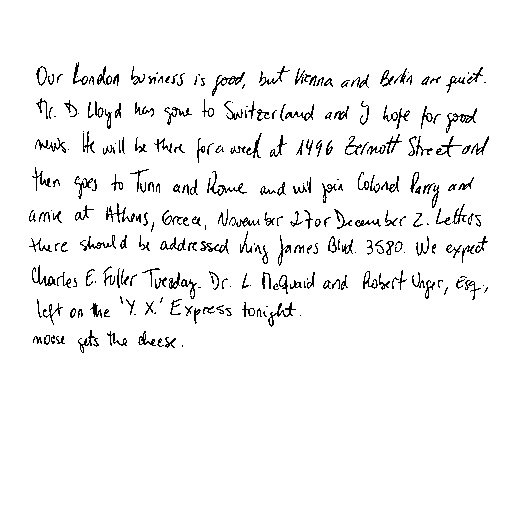 Our London business is good, but Vienna and Berlin are quiet.
Mr. D. Lloyd has gone to Switzerland and I hope for good
news. He will be there for a week at 1496 Zermott Street and
then goes to Turin and Rome and will join Colonel Parry and
arrive at Athens, Greece, November 27 or December 2. Letters
there should be addressed King James Blvd. 3580. We expect
Charles E. Fuller Tuesday. Dr. L. McQuaid and Robert Unger, Esq.,
left on the 'Y. X.' Express tonight.
gets the cheese.